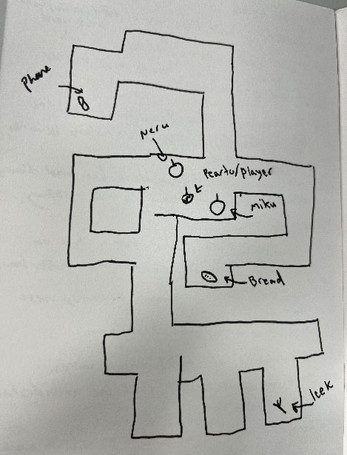 Phone
Neru
Pearto/player
Miku
Bread
leek